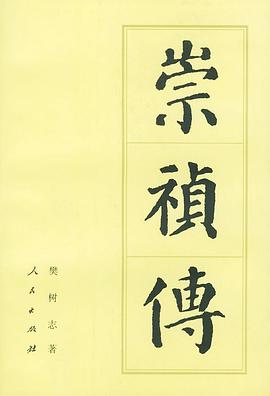 崇禎傳
樊树志著
人民出版社